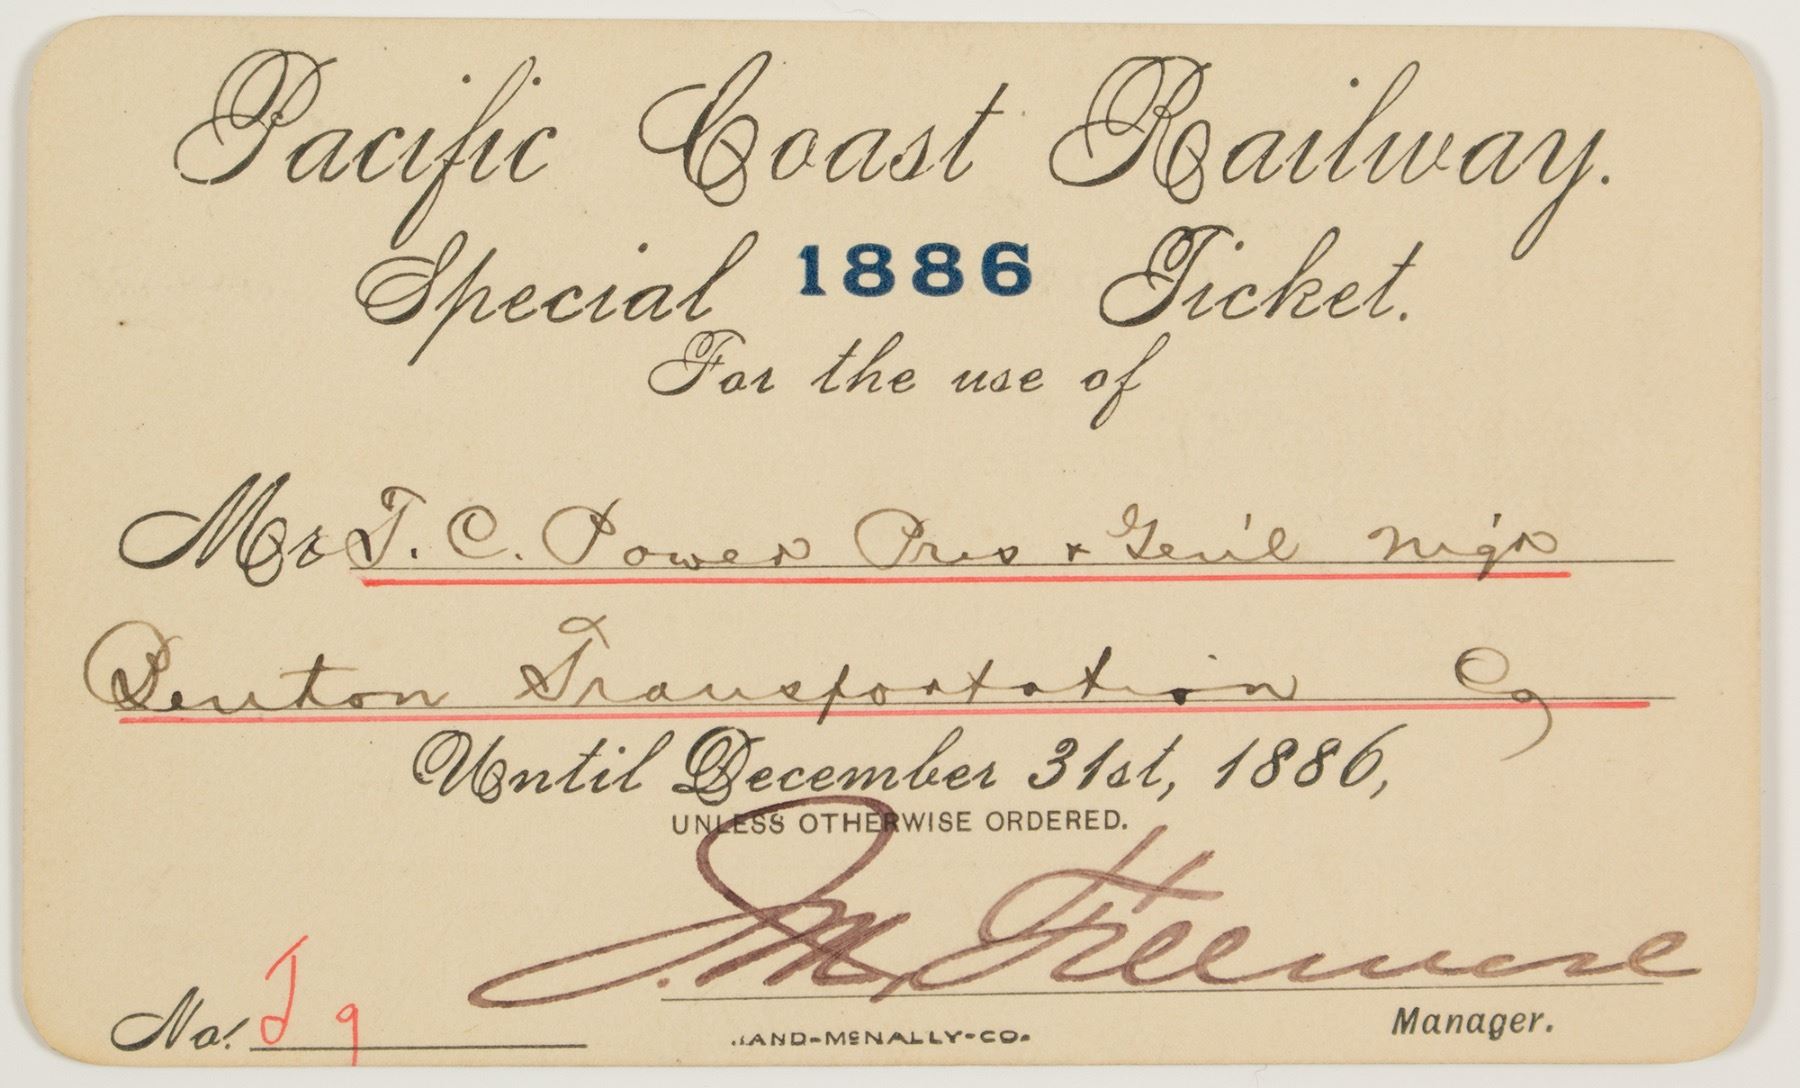 Pacific Coast Railway.
Special 1886 Ticket.
For the use of
Mr T. C. Power Pres & Gen'l M'g'r
Benton Transportation Co
Until December 31st, 1886,
UNLESS OTHERWISE ORDERED.
J. M. Fillmore
Manager.
No. J 9
RAND-McNALLY-CO.